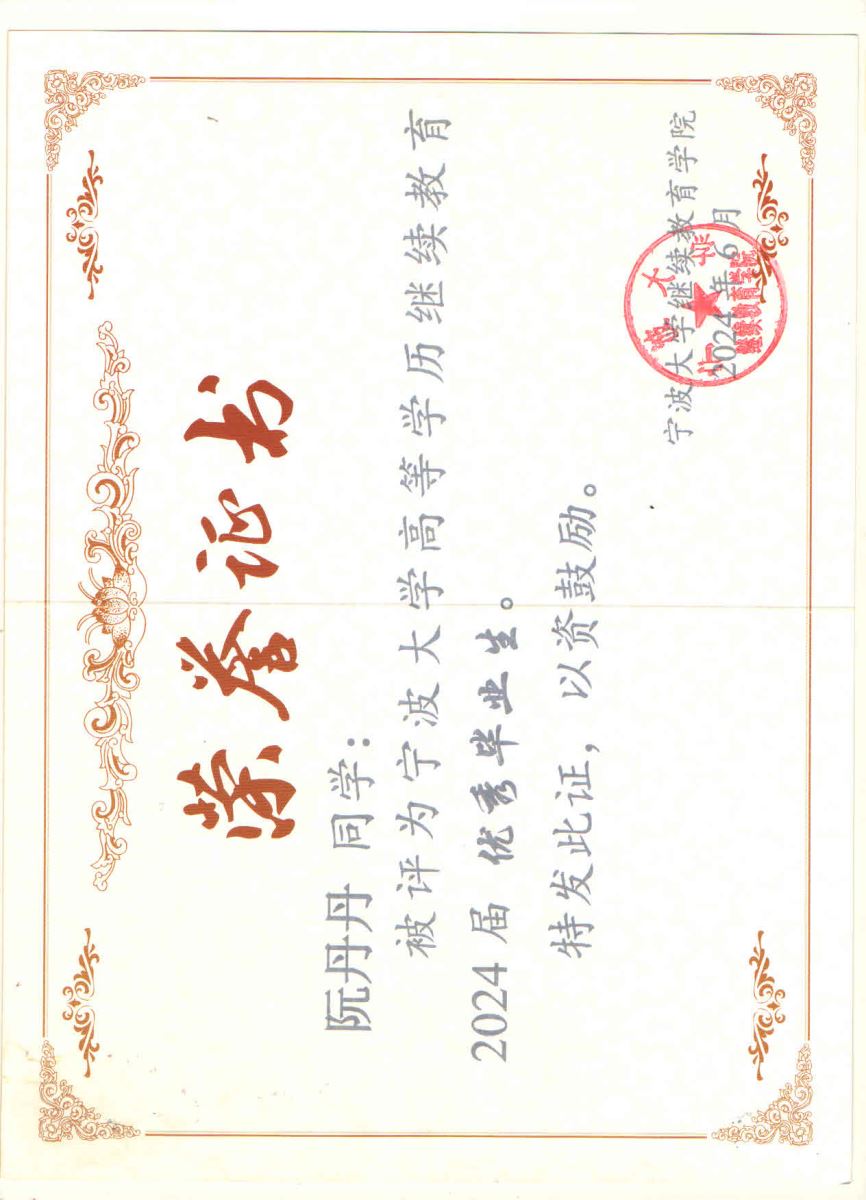 荣誉证书
阮丹丹 同学：
被评为宁波大学高等学历继续教育
2024 届 优秀毕业生。
特发此证，以资鼓励。
宁波大学继续教育学院
2024 年 6 月
宁波大学
继续教育学院